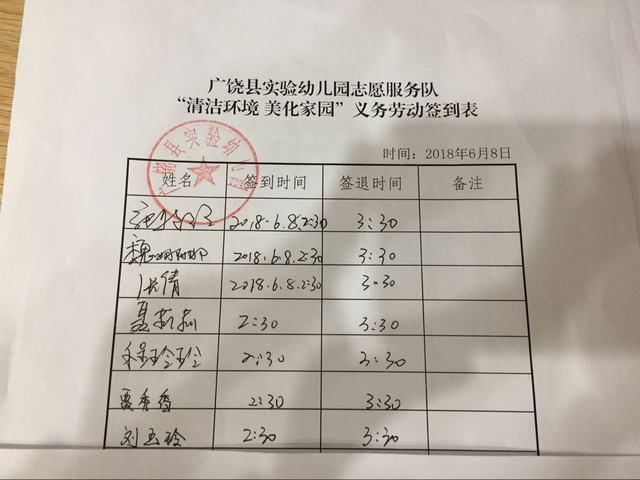 广饶县实验幼儿园志愿服务队
“清洁环境 美化家园”义务劳动签到表
时间：2018年6月8日
广饶县实验幼儿园
姓名 签到时间 签退时间 备注
2018.6.8.2:30 3:30
魏 2018.6.8.2:30 3:30
张倩 2018.6.8.2:30 3:30
聂莉莉 2:30 3:30
2:30 3:30
贾香香 2:30 3:30
刘玉玲 2:30 3:30